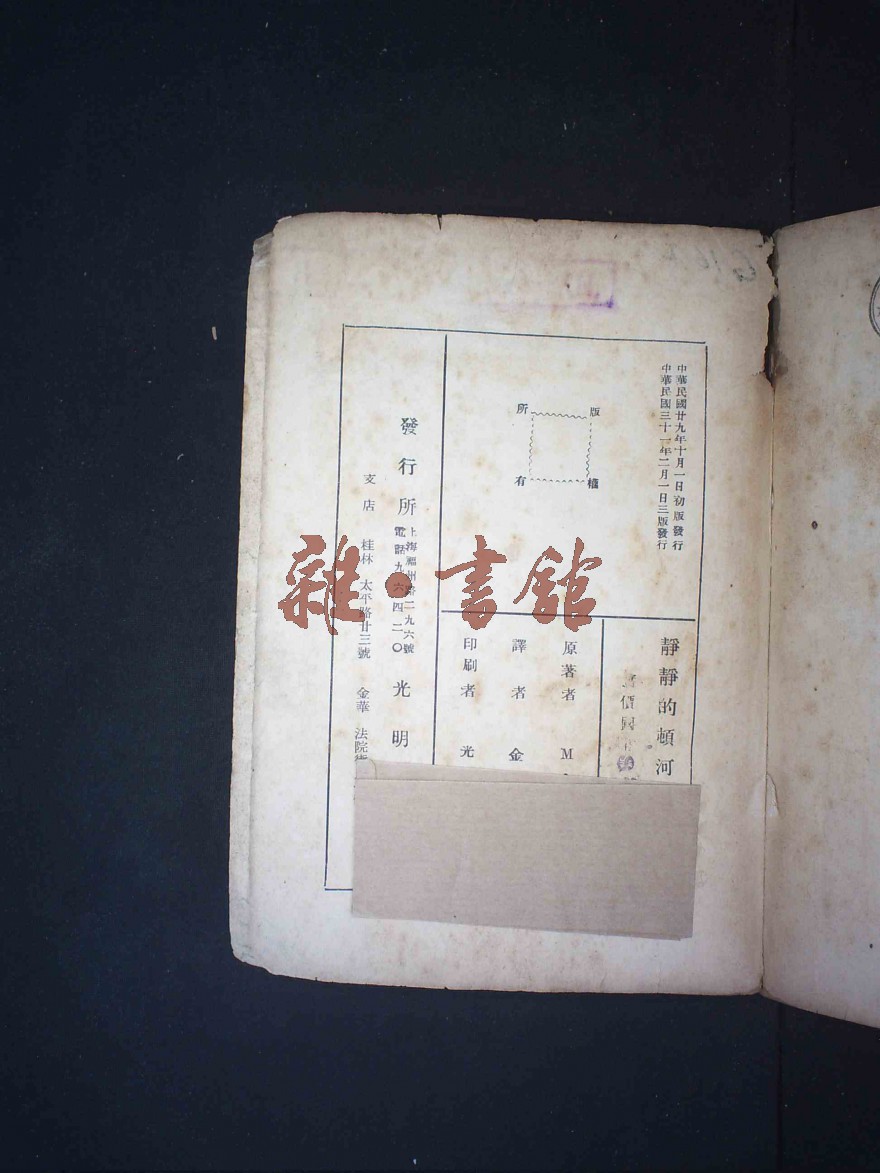 中華民國廿九年十月一日初版發行
中華民國三十一年二月一日三版發行
版權
所有
靜靜的頓河
價國
原著者 M
譯者 金
印刷者 光
發行所 光明
上海福州路二九六號
電話九六四二〇
支店 桂林 太平路廿三號 金華 法院街
雜·書館